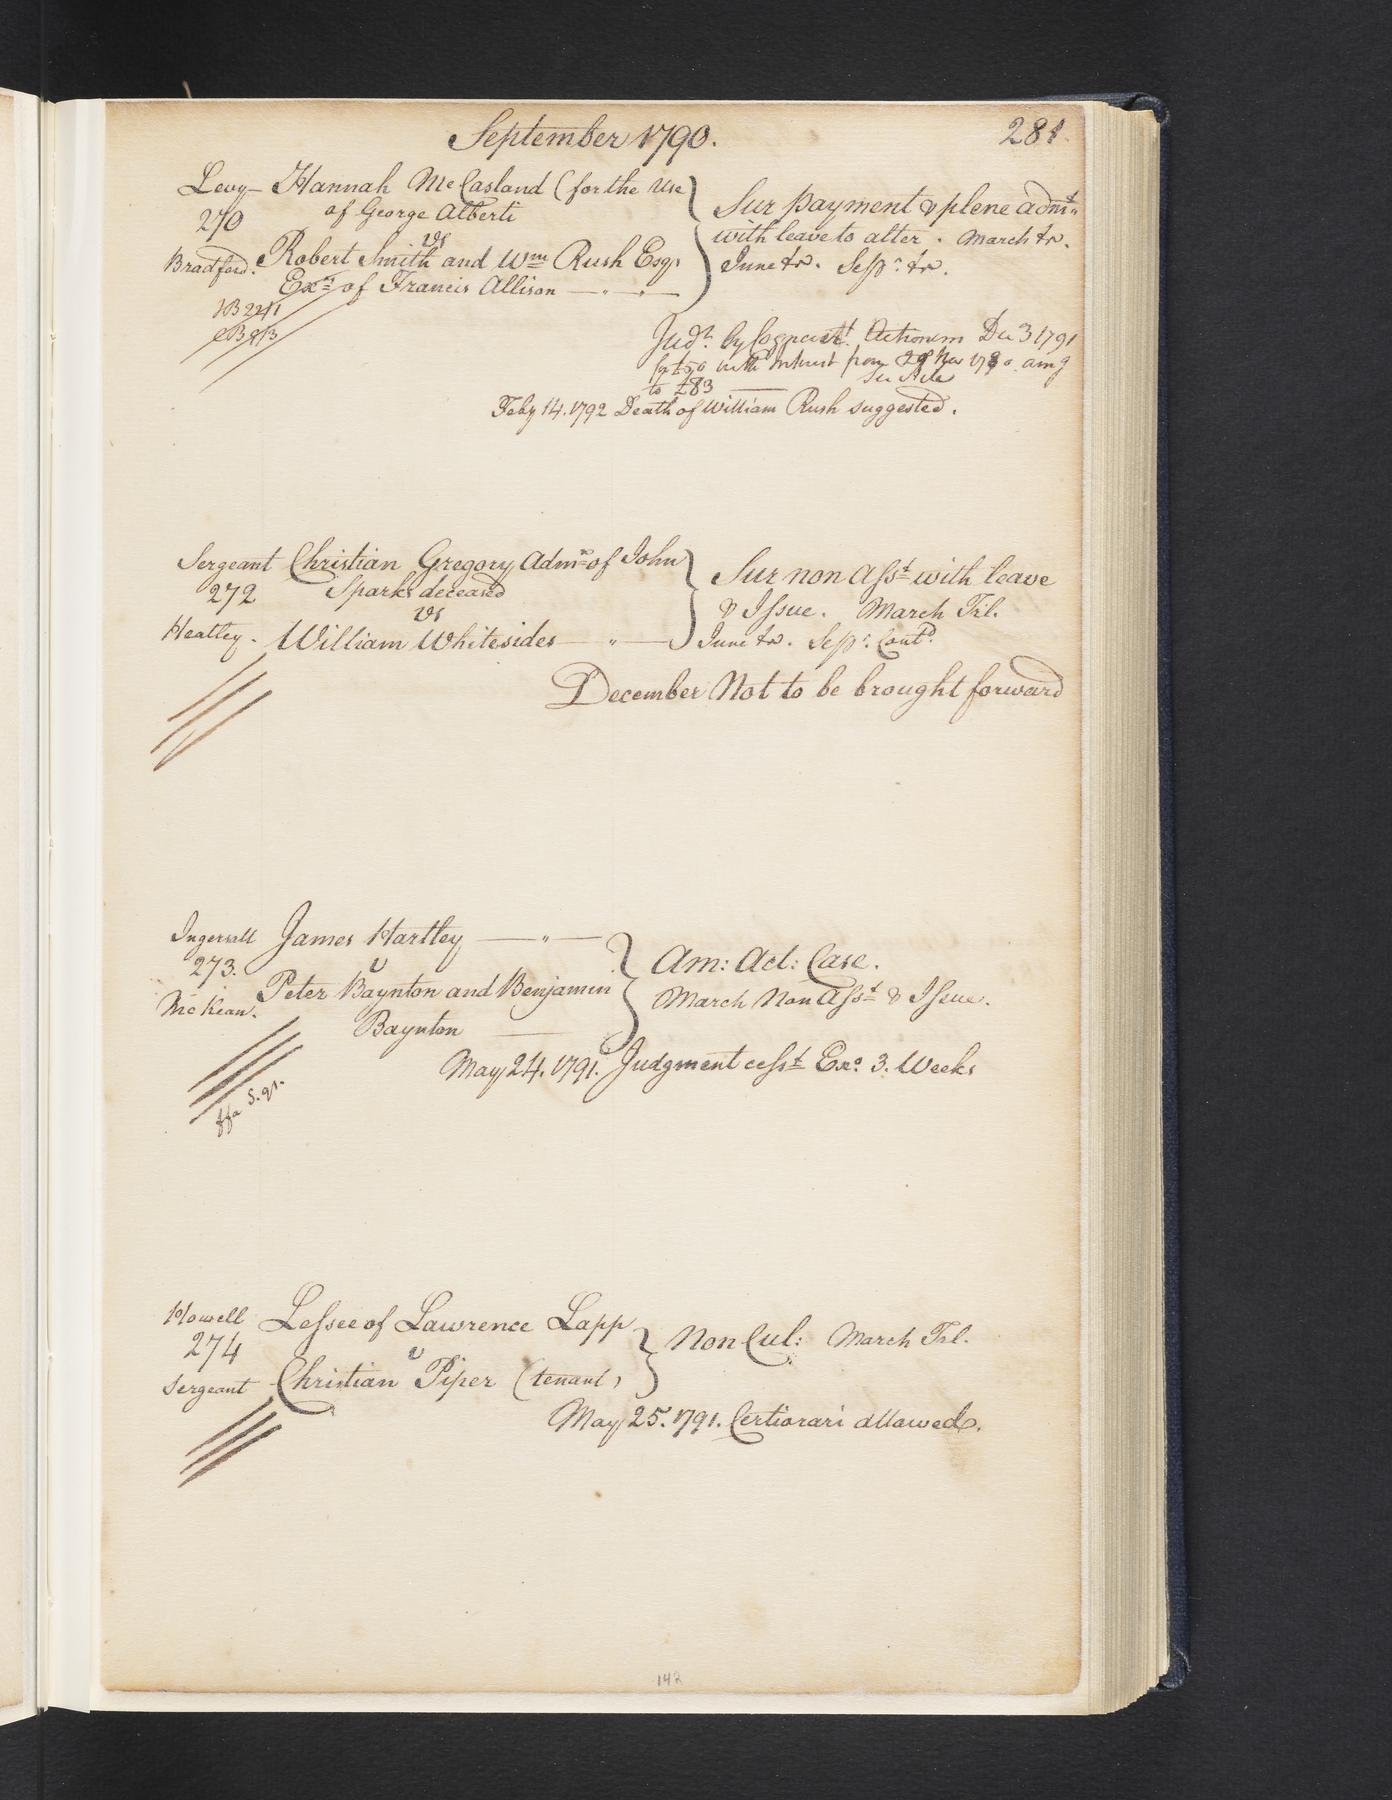 September 1790.
281
Levy — Hannah McCasland (for the Use
270 of George Alberti
vs
Bradford. Robert Smith and Wm Rush Esqr
Exrs of Francis Allison — " — " —
Sur payment & plene admt
with leave to alter. March tr.
June tr. Sepr. tr.
Judt. by Cognovit Actionem Dec 3 1791
for £50 with Interest from 29 Nov 1780. amg
to £83
Feby 14. 1792 Death of William Rush suggested.
Sergeant Christian Gregory Admr of John
272 Sparks deceased
vs
Heatley. William Whitesides — " —
Sur non Asst with leave
& Issue. March Trl.
June tr. Sepr. Contd.
December Not to be brought forward
Ingersoll James Hartley — " —
273. v
McKean. Peter Baynton and Benjamin
Baynton —
Am: Act: Case.
March Non Asst & Issue.
May 24. 1791. Judgment cesst Exo. 3. Weeks
ffa S. 91.
Howell Lessee of Lawrence Lapp
274 v
Sergeant Christian Piper (tenant)
Non Cul: March Trl.
May 25. 1791. Certiorari allowed.
142